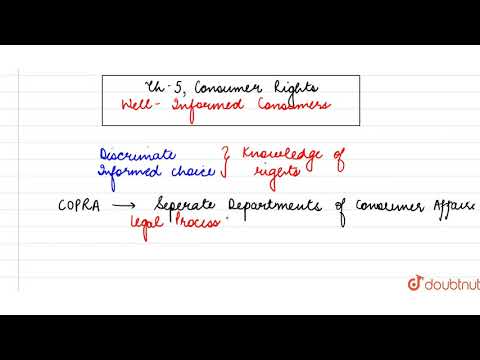 Ch-5, Consumer Rights
Well-Informed Consumers
Discrimate } Knowledge of
Informed choice } rights
COPRA → Seperate Departments of Consumer Affairs
Legal Process
doubtnut